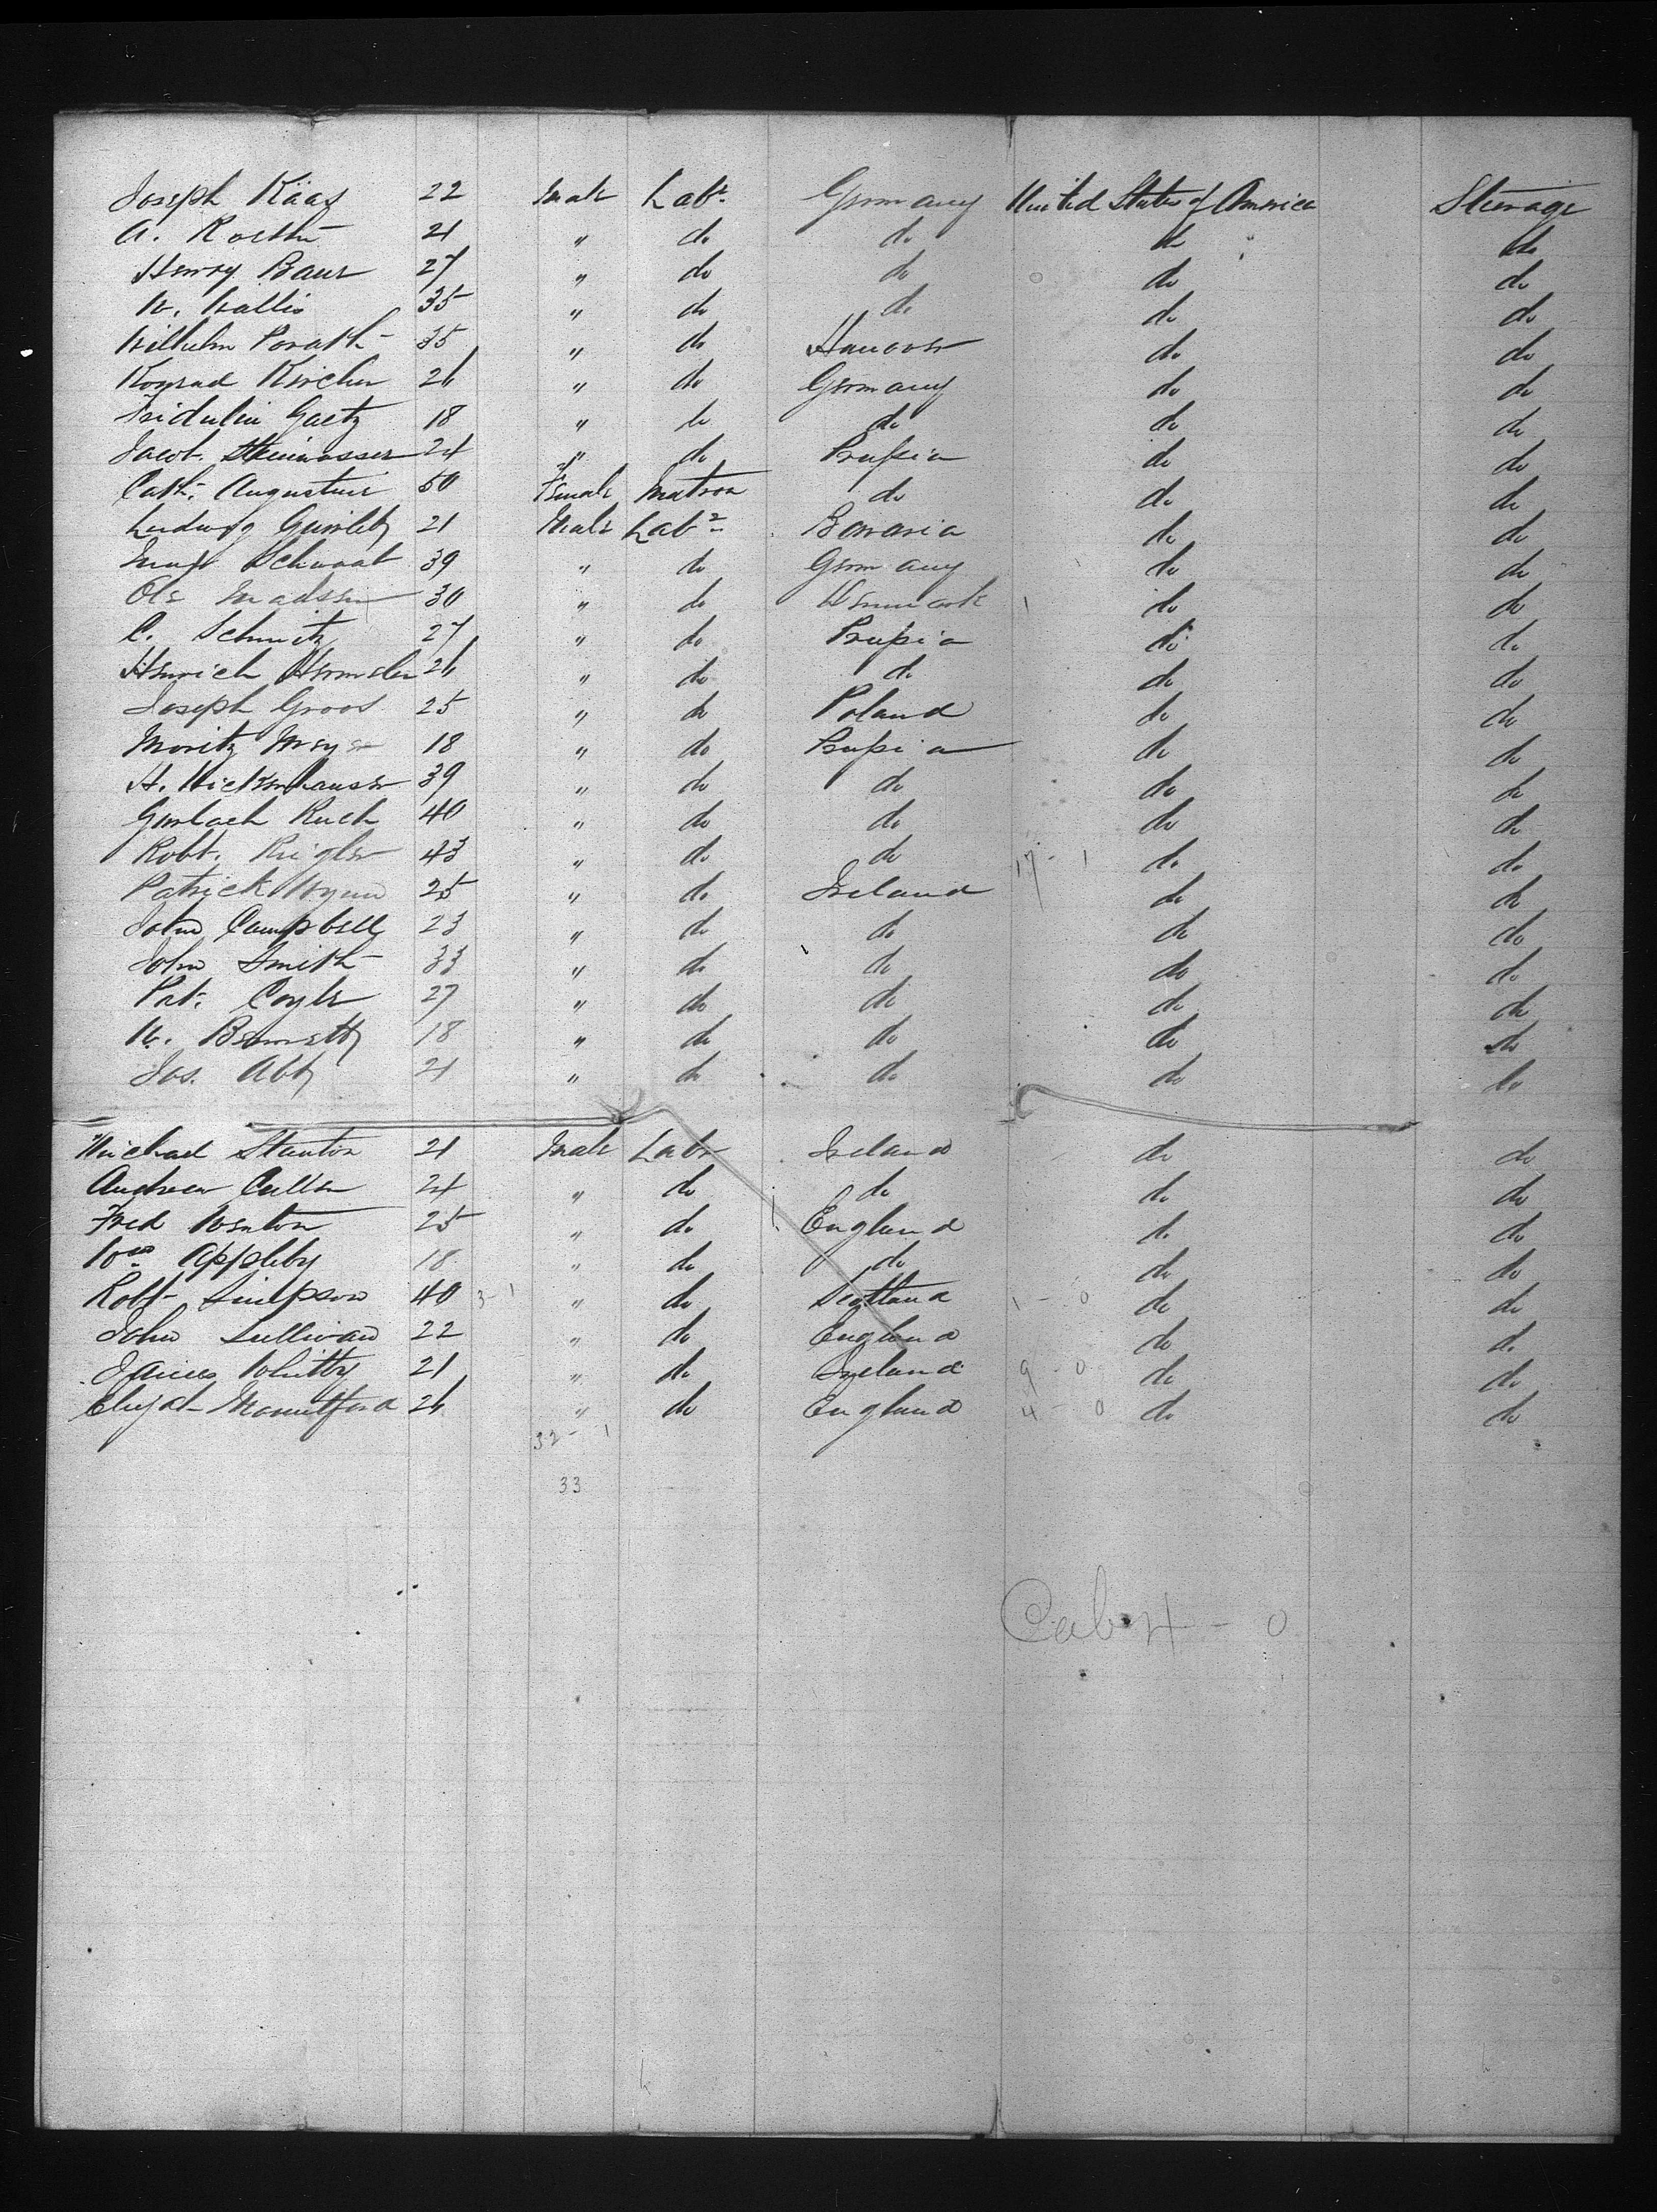 Joseph Kääs 22 Male Labr Germany United States of America Steerage
A. Roethe 21 " do do do do
Henry Baur 27 " do do do do
W. Wallis 35 " do do do do
Wilhelm Porath 35 " do Hanover do do
Konrad Kircher 26 " do Germany do do
Fridulin Gaetz 18 " do do do do
Jacob Steinwasser 24 " do Prussia do do
Cath. Augustine 50 Female Matron do do do
Ludwig 21 Male Labr Bavaria do do
Schwaab 39 " do Germany do do
Ole Madssen 30 " do Denmark do do
C. Schmitz 27 " do Prussia do do
Heinrich 26 " do do do do
Joseph Groos 25 " do Poland do do
Moritz Meyer 18 " do Prussia do do
H. Wickenhauser 39 " do do do do
Gerlach Ruch 40 " do do do do
Robt. Rigler 43 " do do 17 - 1 do do
Patrick Wynn 25 " do Ireland do do
John Campbell 23 " do do do do
John Smith 33 " do do do do
Pat. Coyle 27 " do do do do
W. Bennett 18 " do do do do
Jos. Abt 21 " do do do do
Michael Stanton 21 Male Labr Ireland do do
Andrew Cullen 24 " do do do do
Fred Wenton 25 " do England do do
Wm Appleby 18 " do do do do
Robt Simpson 40 3-1 " do Scotland 1 - 0 do do
John Sullivan 22 " do England do do
James Whitty 21 " do Ireland 9 - 0 do do
Elijah Mountford 26 " do England 4 - 0 do do
32 - 1
33
Cab 4 - 0